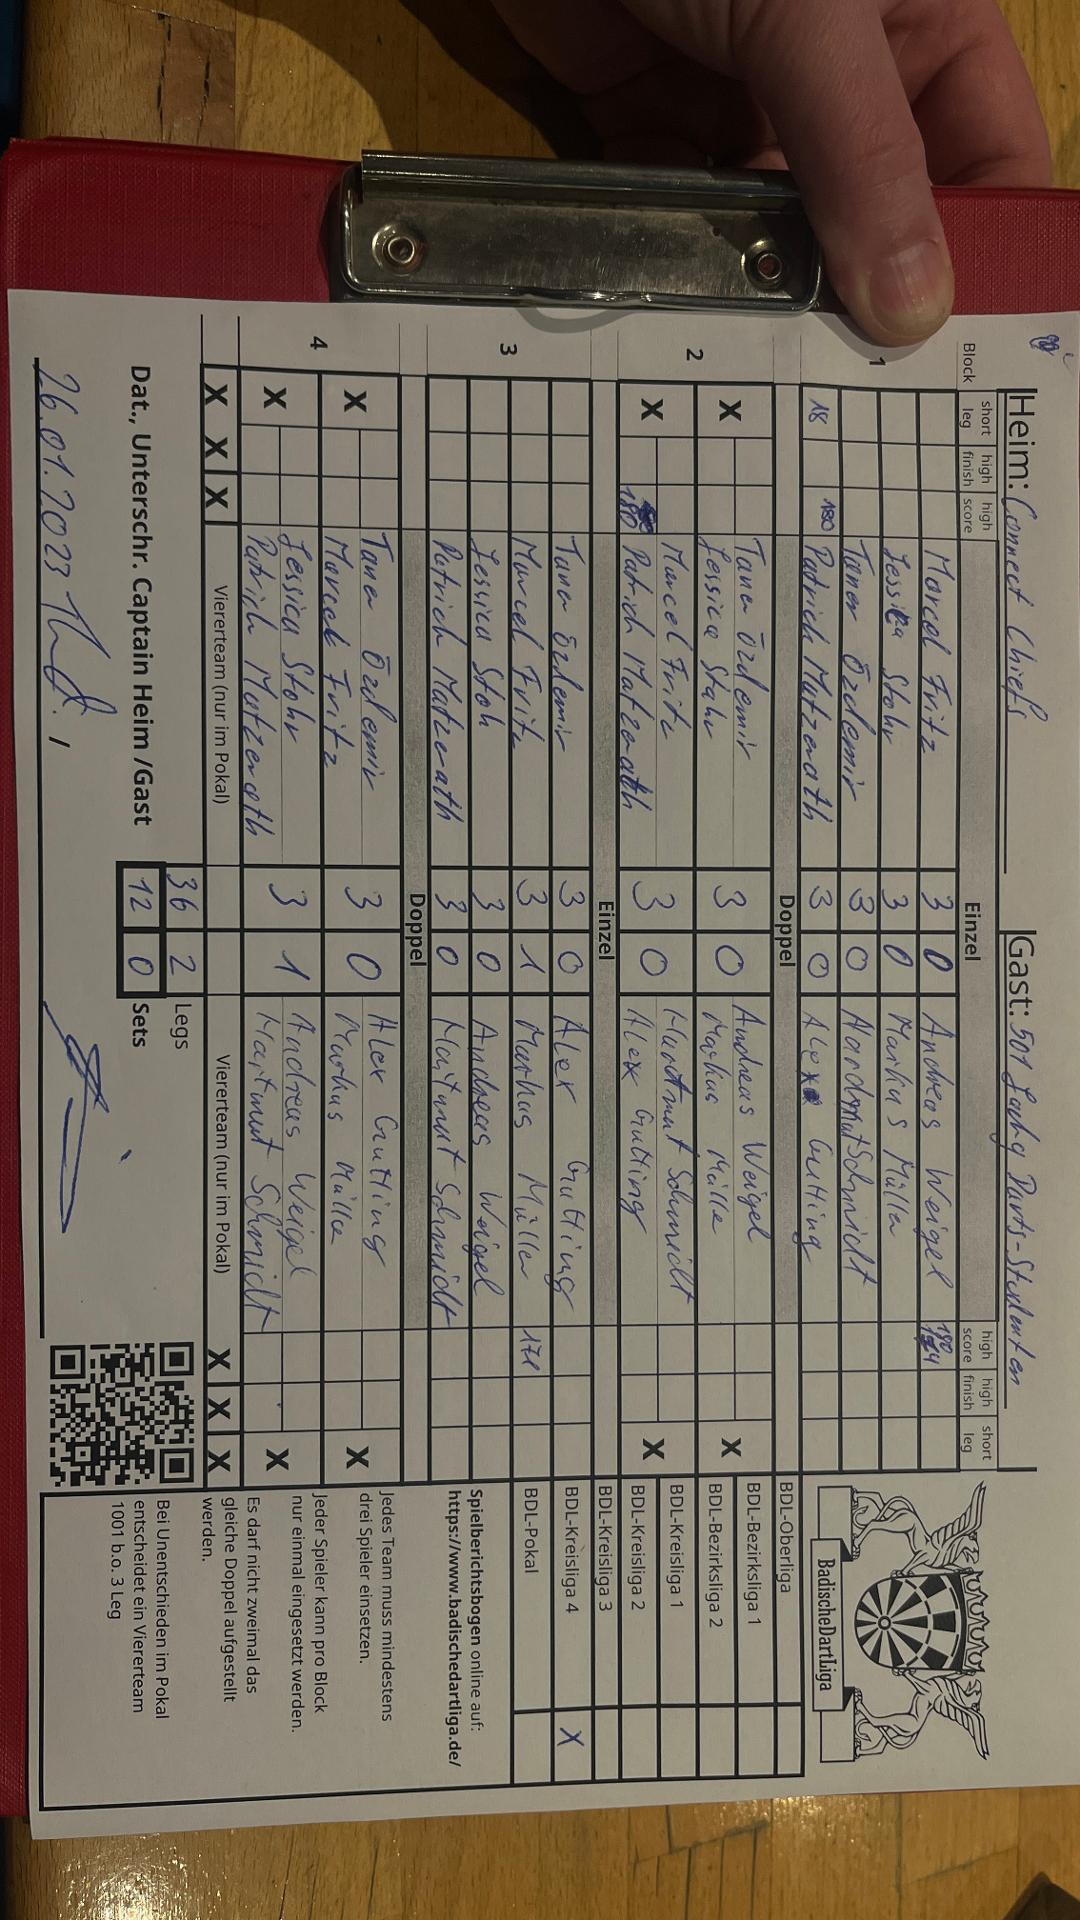 Heim: Connect Chiefs Gast: 501 Lachy Darts-Studenten
Block short leg high finish high score Einzel high score high finish short leg
1
Marcel Fritz 3 0 Andreas Weigel 180
Jessica Stohr 3 0 Markus Müller
Taner Özdemir 3 0 Schmidt
18 180 Patrick Matzerath 3 0 Alex Gutting
Doppel
2
X Taner Özdemir 3 0 Andreas Weigel X
Jessica Stohr Markus Müller
X Marcel Fritz 3 0 Hartmut Schmidt X
180 Patrick Matzerath Alex Gutting
Einzel
3
Taner Özdemir 3 0 Alex Gutting
Marcel Fritz 3 1 Markus Müller 171
Jessica Stoh 3 0 Andreas Weigel
Patrick Matzerath 3 0 Hartmut Schmidt
Doppel
4
X Taner Özdemir 3 0 Alex Gutting X
Marcel Fritz Markus Müller
X Jessica Stohr 3 1 Andreas Weigel X
Patrick Matzerath Hartmut Schmidt
X X X Viererteam (nur im Pokal) Viererteam (nur im Pokal) X X X
36 2 Legs
Dat., Unterschr. Captain Heim /Gast 12 0 Sets
26.01.2023
BadischeDartLiga
BDL-Oberliga
BDL-Bezirksliga 1
BDL-Bezirksliga 2
BDL-Kreisliga 1
BDL-Kreisliga 2
BDL-Kreisliga 3
BDL-Kreisliga 4 X
BDL-Pokal
Spielberichtsbogen online auf:
https://www.badischedartliga.de/
Jedes Team muss mindestens
drei Spieler einsetzen.
Jeder Spieler kann pro Block
nur einmal eingesetzt werden.
Es darf nicht zweimal das
gleiche Doppel aufgestellt
werden.
Bei Unentschieden im Pokal
entscheidet ein Viererteam
1001 b.o. 3 Leg